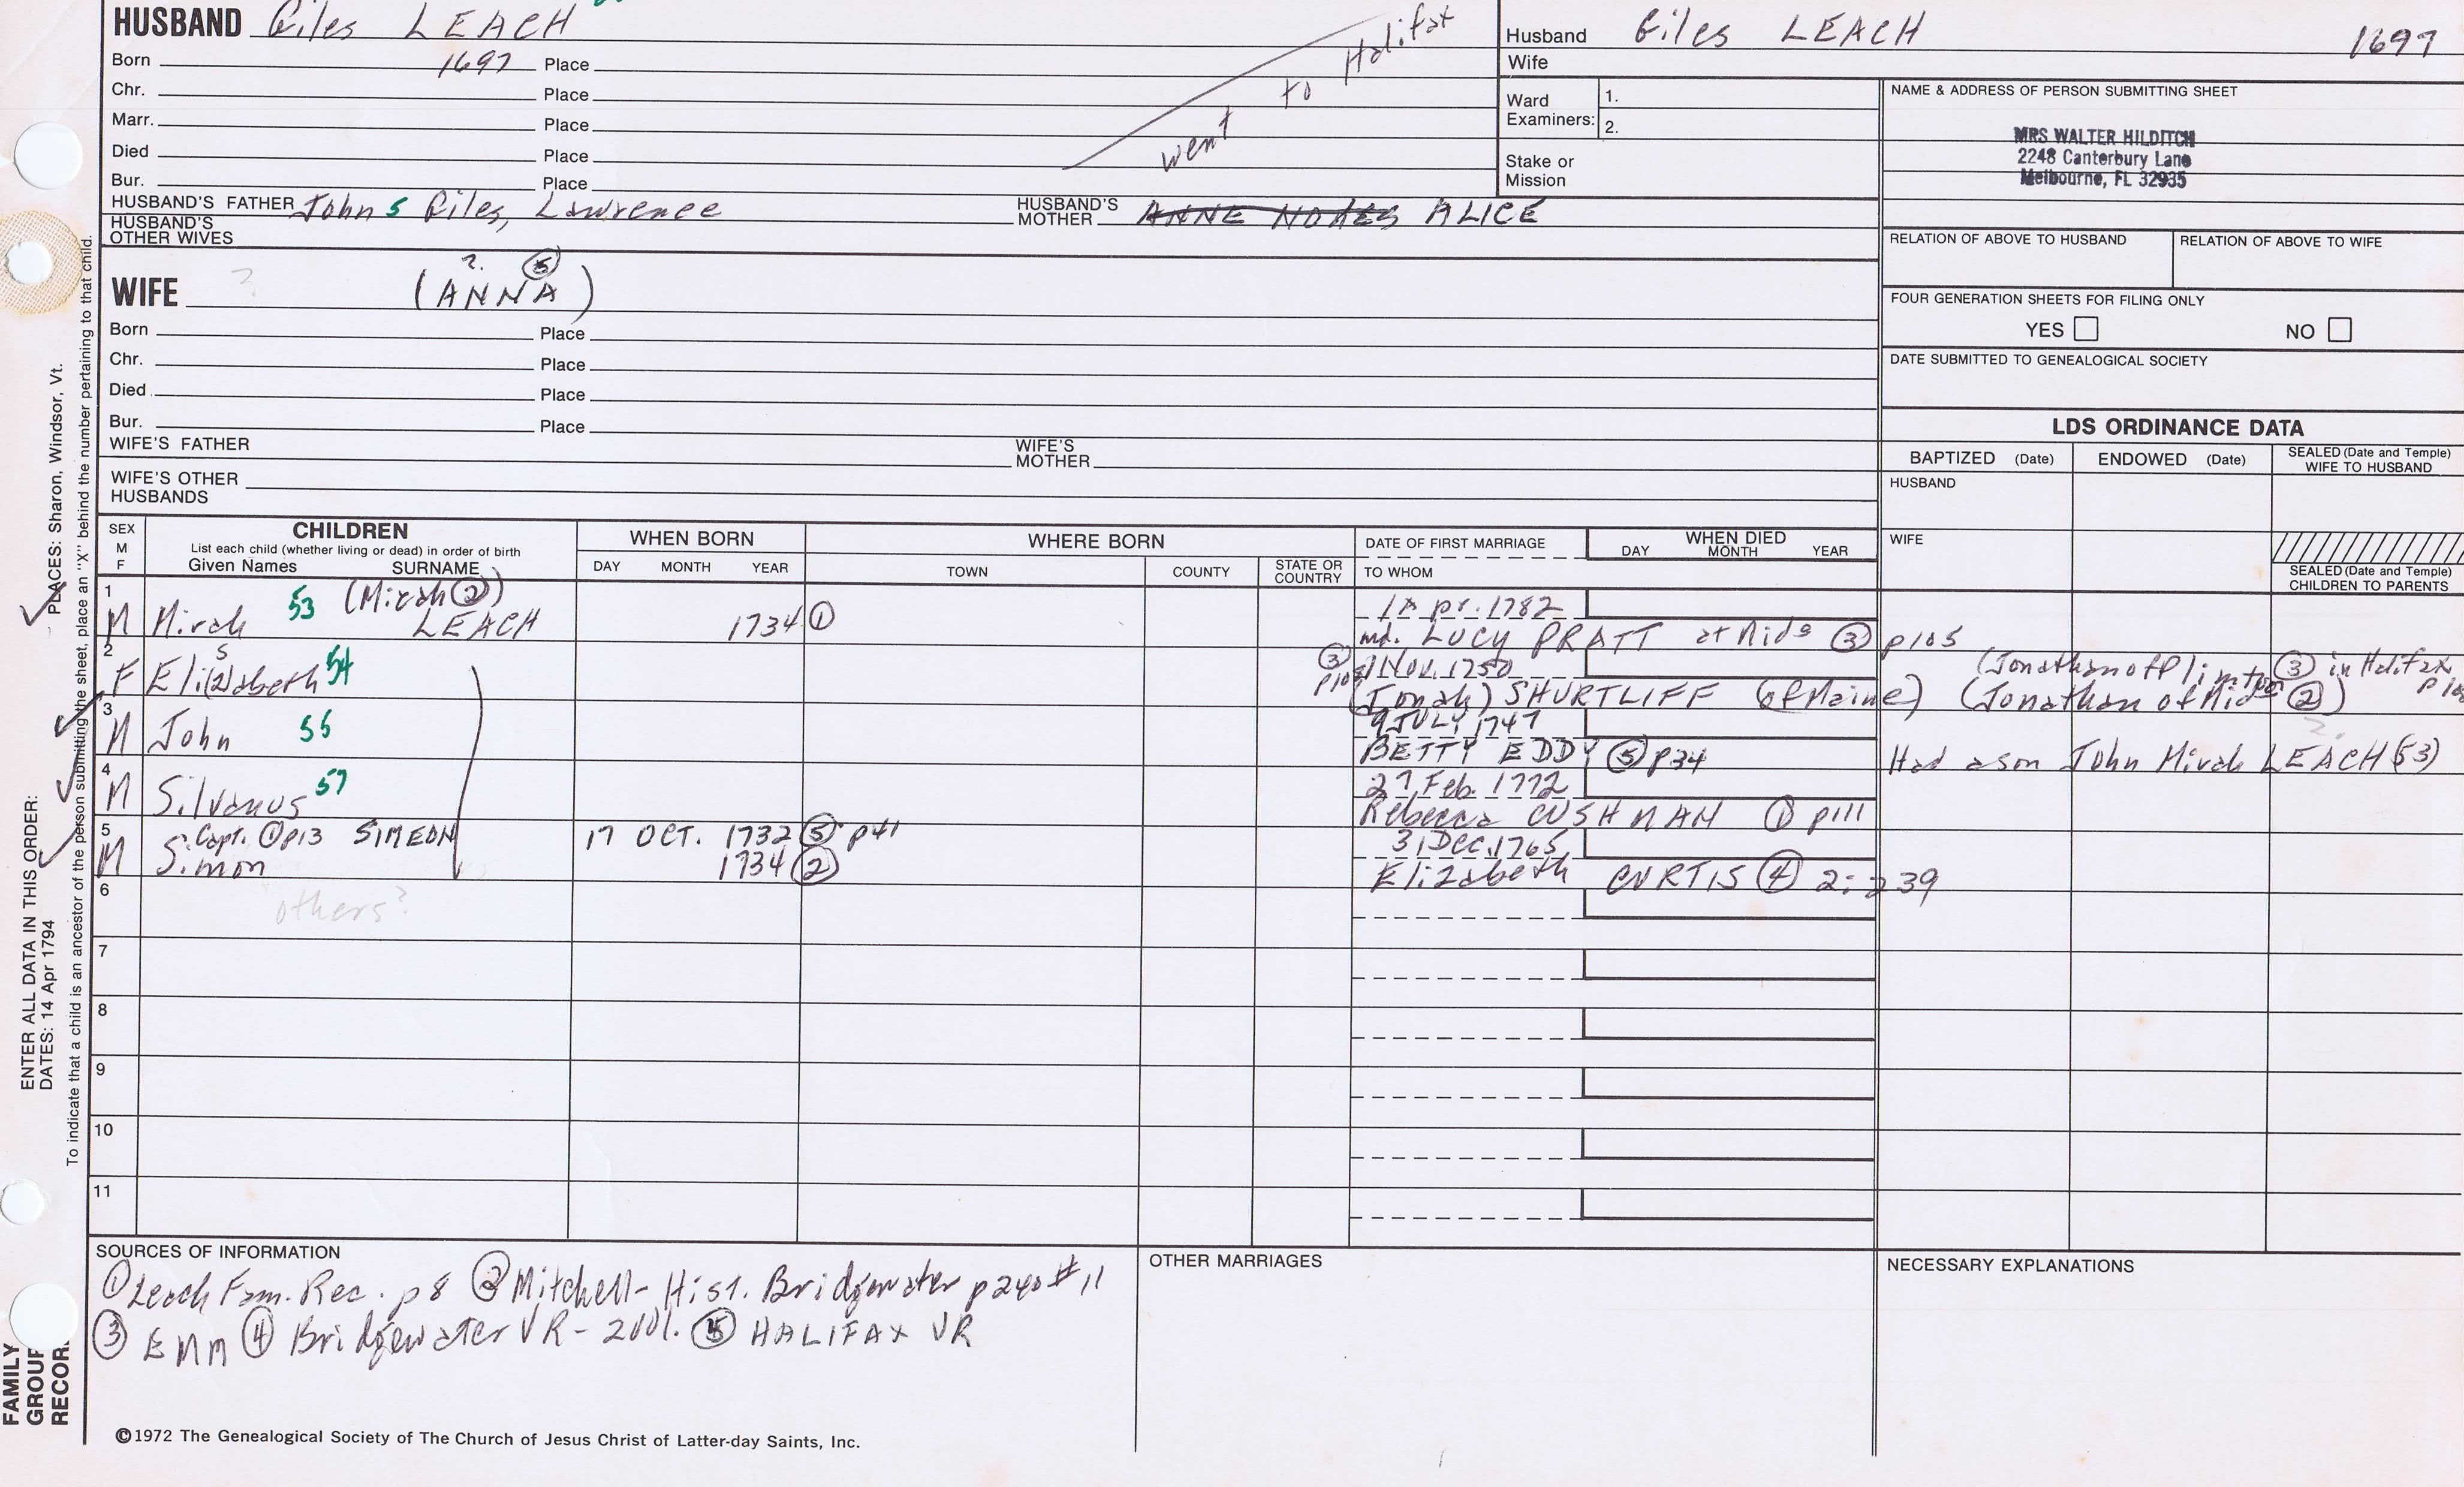 HUSBAND Giles LEACH
Born 1697 Place
Chr. Place
Marr. Place
Died Place
Bur. Place
went to Halifax
HUSBAND'S FATHER John 5 Giles, Lawrence HUSBAND'S MOTHER ANNE NOKES ALICE
HUSBAND'S OTHER WIVES
Husband Giles LEACH 1697
Wife
Ward Examiners: 1.
2.
Stake or Mission
NAME & ADDRESS OF PERSON SUBMITTING SHEET
MRS WALTER HILDITCH
2248 Canterbury Lane
Melbourne, FL 32935
RELATION OF ABOVE TO HUSBAND RELATION OF ABOVE TO WIFE
FOUR GENERATION SHEETS FOR FILING ONLY
YES NO
DATE SUBMITTED TO GENEALOGICAL SOCIETY
? ⑤
WIFE ? (ANNA)
Born Place
Chr. Place
Died Place
Bur. Place
WIFE'S FATHER WIFE'S MOTHER
WIFE'S OTHER HUSBANDS
LDS ORDINANCE DATA
BAPTIZED (Date) ENDOWED (Date) SEALED (Date and Temple) WIFE TO HUSBAND
HUSBAND
WIFE
SEALED (Date and Temple) CHILDREN TO PARENTS
SEX M F
CHILDREN
List each child (whether living or dead) in order of birth
Given Names SURNAME
WHEN BORN
DAY MONTH YEAR
WHERE BORN
TOWN COUNTY STATE OR COUNTRY
DATE OF FIRST MARRIAGE
TO WHOM
WHEN DIED
DAY MONTH YEAR
1 53 (Micah ②) 1 Apr. 1782
M Mirah LEACH 1734 ① md. LUCY PRATT at Mids ③ p105
2 S 54 ③ 1 Nov. 1750 (Jonathan of Plimton ③ in Halifax
F Eli(z)abeth (Jonah) SHURTLIFF (of Maine) (Jonathan of Mid ②)
3 55 9 JULY 1747
M John BETTY EDDY ⑤ p34 Had a son John Mirah LEACH (53)
4 57 27 Feb. 1772
M Silvanus Rebecca CUSHMAN ① p111
5 Capt. ① p13 SIMEON 17 OCT. 1732 ⑤ p41 31 Dec. 1765
M Simon 1734 ② Elizabeth CURTIS ④ 2:239
6 others?
7
8
9
10
11
SOURCES OF INFORMATION
① Leach Fam. Rec. p8 ② Mitchell- Hist. Bridgewater p240 #11
③ EMM ④ Bridgewater VR- 2vol. ⑤ HALIFAX VR
OTHER MARRIAGES
NECESSARY EXPLANATIONS
©1972 The Genealogical Society of The Church of Jesus Christ of Latter-day Saints, Inc.
FAMILY GROUP RECOR
ENTER ALL DATA IN THIS ORDER:
DATES: 14 Apr 1794
PLACES: Sharon, Windsor, Vt.
To indicate that a child is an ancestor of the person submitting the sheet, place an "X" behind the number pertaining to that child.